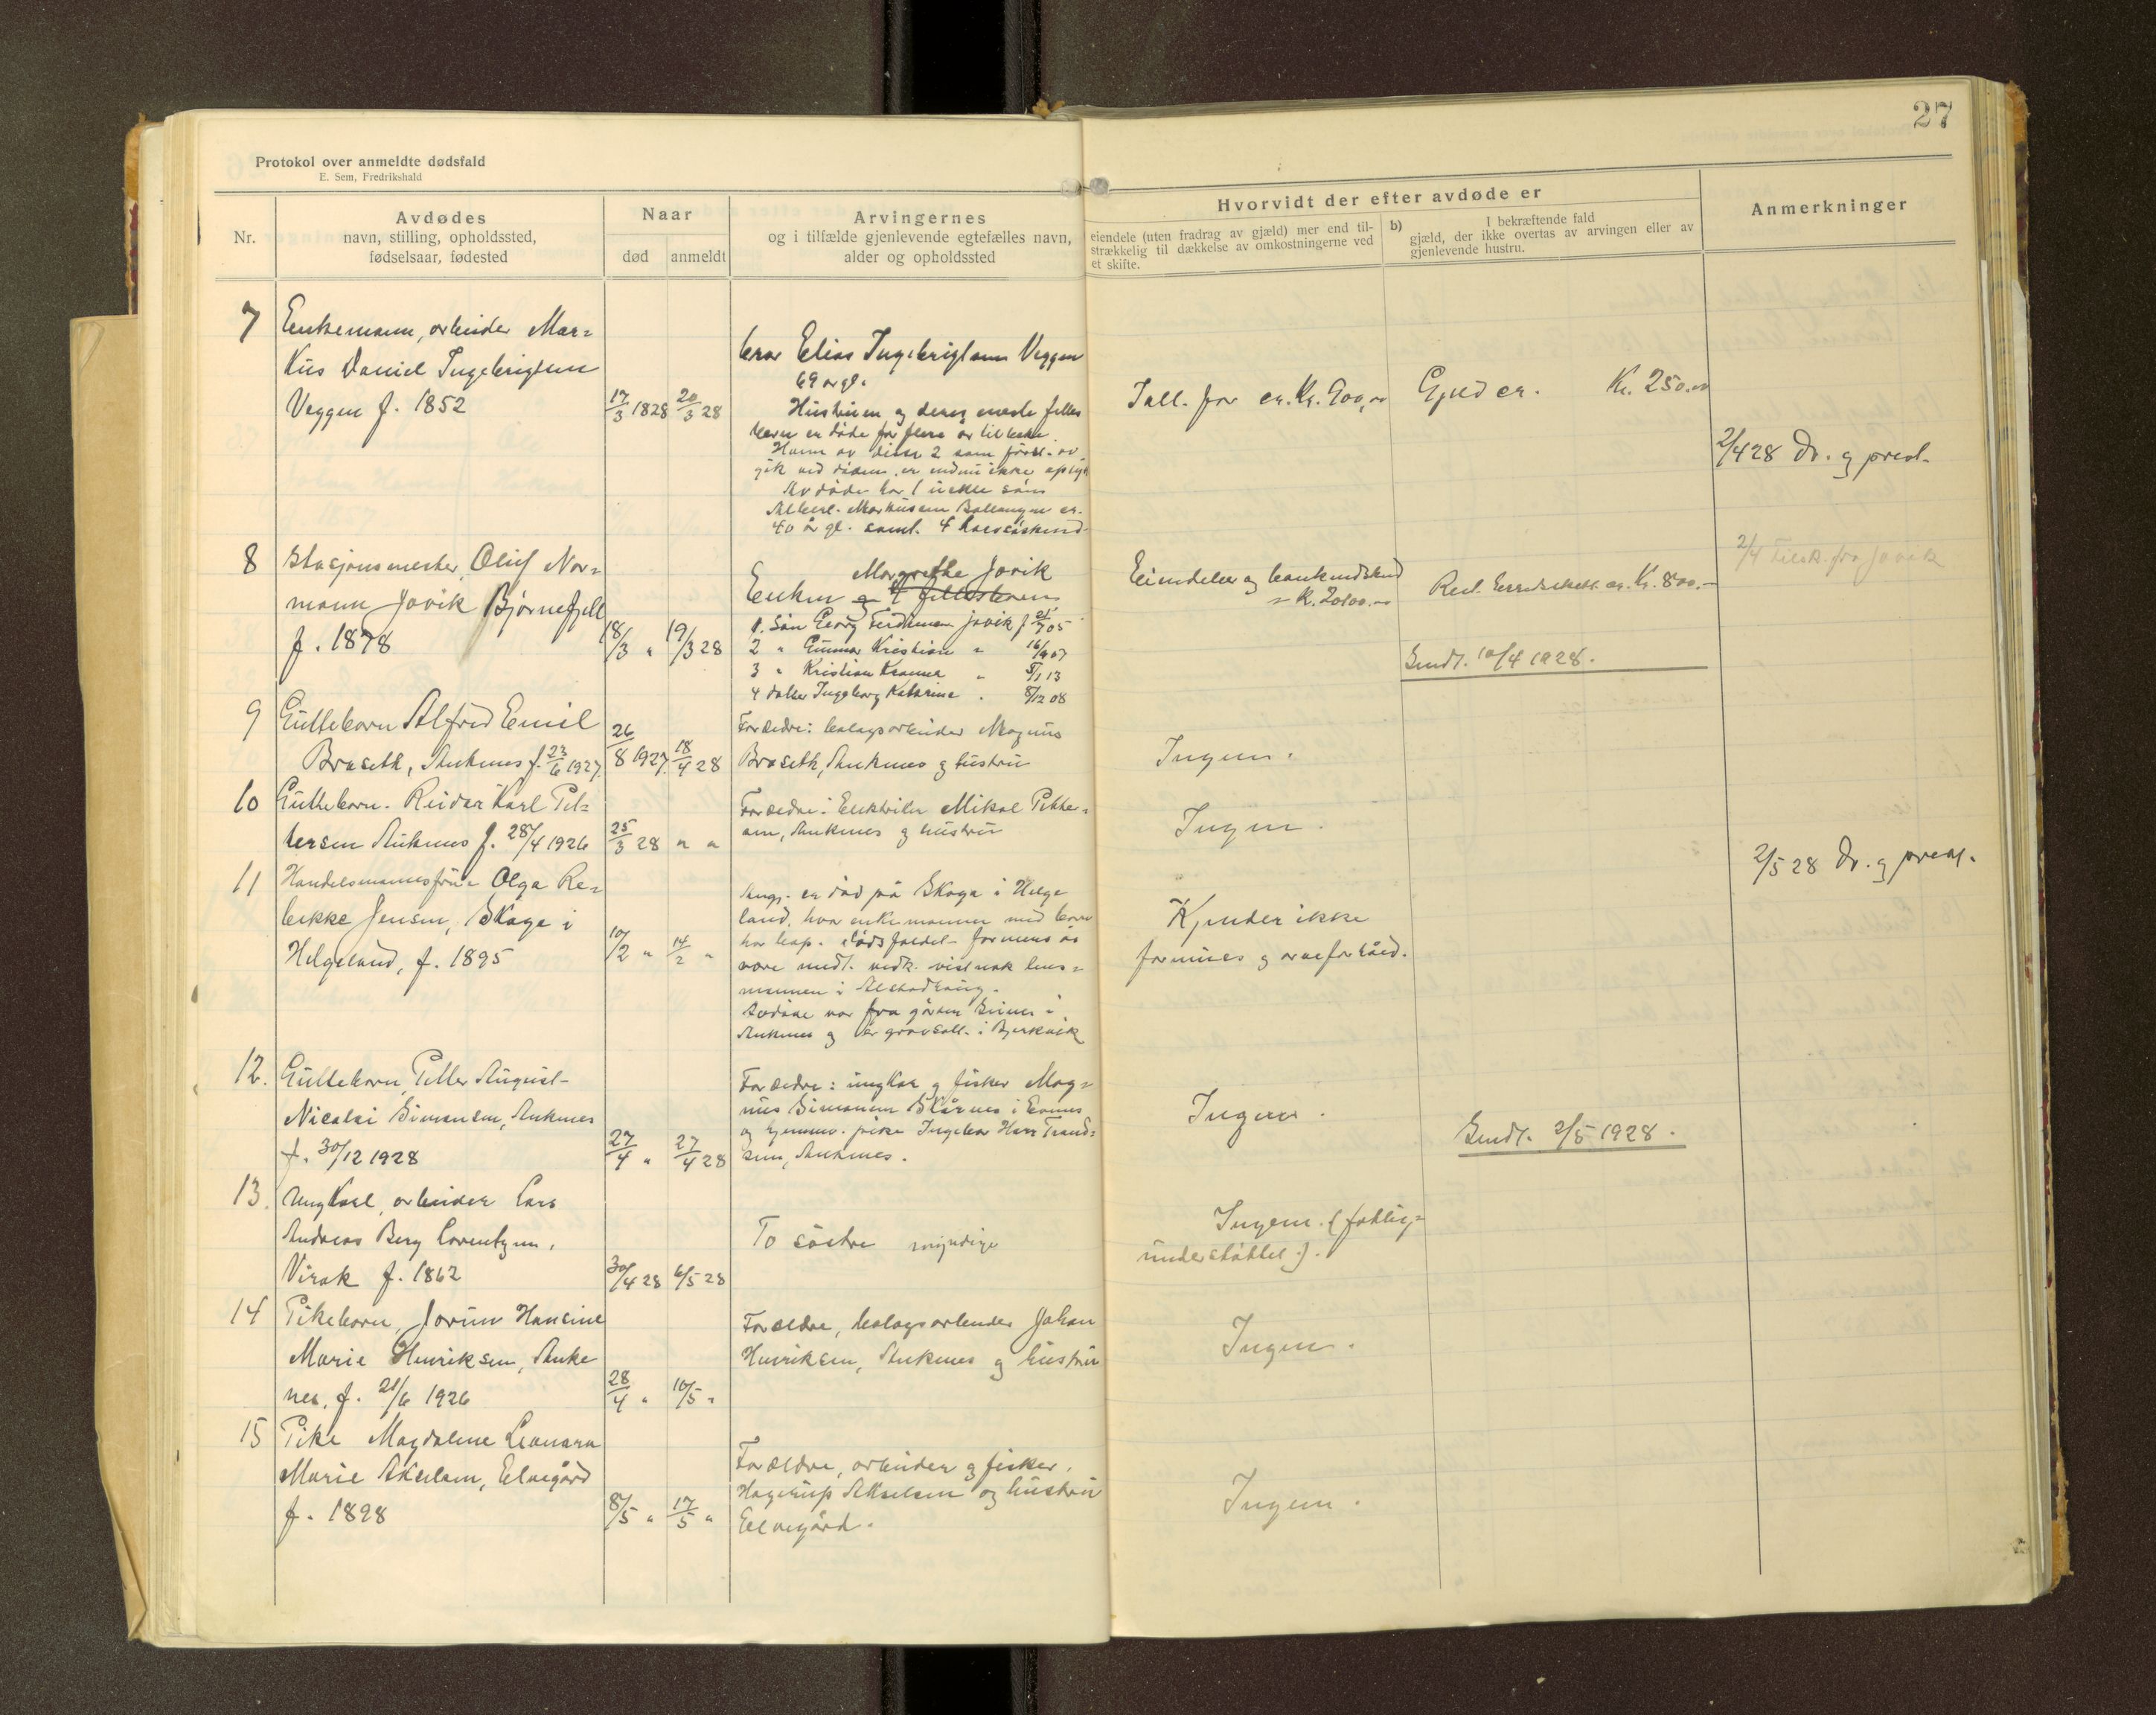 27
Protokol over anmeldte dødsfald
E. Sem, Fredrikshald
Nr.
Avdødes
navn, stilling, opholdssted,
fødselsaar, fødested
Naar
død anmeldt
Arvingernes
og i tilfælde gjenlevende egtefælles navn,
alder og opholdssted
Hvorvidt der efter avdøde er
eiendele (uten fradrag av gjæld) mer end til-
strækkelig til dækkelse av omkostningerne ved
et skifte.
b) I bekræftende fald
gjæld, der ikke overtas av arvingen eller av
gjenlevende hustru.
Anmerkninger
7 Enkemann, arbeider Mar=
kus Daniel Ingebrigtsen
Veggen f. 1852
17/3 1828 20/3 28
bror Elias Ingebrigtsen Veggen
69 år gl.
Hustruen og deres eneste felles
barn er døde for flere år tilbake.
Hvem av disse 2 som først av
gik ved døden er endnu ikke oplyst
Avdøde har 1 uekte søn
Albert Markussen Ballangen ca.
40 år gl. samt 4 halvsøskend
Tall. for ca. Kr. 900,00
Gjeld ca. Kr. 250.00
2/4 28 Dr. og prest.
8 Stasjonsmester, Oluf Nor=
mann Jovik Bjørnefjell
f. 1878
18/3 " 19/3 28
Margrethe Jovik
Enken og 4 fellesbarn
1. Søn Georg Ferdinan Jovik f 25/7 05
2 " Gunnar Kristian " 16/9 07
3 " Kristian Kranner " 5/1 13
4 datter Ingeborg Katarine " 8/12 08
Eiendeler og bankindskud
= K. 20100.00
Rest. herredsskatt ca. Kr. 800.-
2/4 tilsk. fra Jovik
Sendt. 10/4 1928.
9 Guttebarn Alfred Emil
Braseth, Ankenes f. 23/6 1927.
26/8 1927. 18/4 28
Forældre: bolagsarbeider Magnus
Braseth, Ankenes og hustru
Ingen.
10 Guttebarn. Reidar Karl Pet=
tersen Ankenes f. 28/4 1926
25/3 28 " "
Forældre: Elektriker Mikal Petter=
sen, Ankenes og hustru
Ingen.
11 Handelsmannsfru Olga Re=
bekke Jensen, Skage i
Helgeland, f. 1895
10/2 " 14/2 "
Angj. er død på Skaga i Helge
land, hvor enkemannen med barn
har bop. dødsfaldet formenes å
være medt. vedk. vistnok lens=
mannen i Alstadhaug.
Avdøde var fra gården Seines i
Ankenes og er gravsatt i Bjerkvik
Kjender ikke
formues og arveforhold.
2/5 28 Dr. og prest.
12. Guttebarn Petter August
Nicolai Simonsen, Ankenes
f. 30/12 1928
27/4 " 27/4 28
Forældre: ungkar og fisker Mag=
nus Simonsen Skårnes i Evenes
og hjemmev. pike Ingebor Hans Trand=
sen, Ankenes.
Ingen.
Sendt. 2/5 1928.
13. Ungkarl, arbeider Lars
Andreas Berg Lorentzen,
Virak f. 1862
30/4 28 6/5 28
To søstre myndige
Ingen. (fattig=
understøttet).
14 Pikebarn, Jorun Hansine
Marie Henriksen, Anke
nes, f. 21/6 1926
28/4 " 10/5 "
Forældre, bolagsarbeider Johan
Henriksen, Ankenes og hustru
Ingen.
15 Pike Magdalene Leonara
Marie Akselsen, Elvegård
f. 1898
8/5 " 17/5 "
Forældre, arbeider og fisker,
Hagerup Akselsen og hustru
Elvegård.
Ingen.